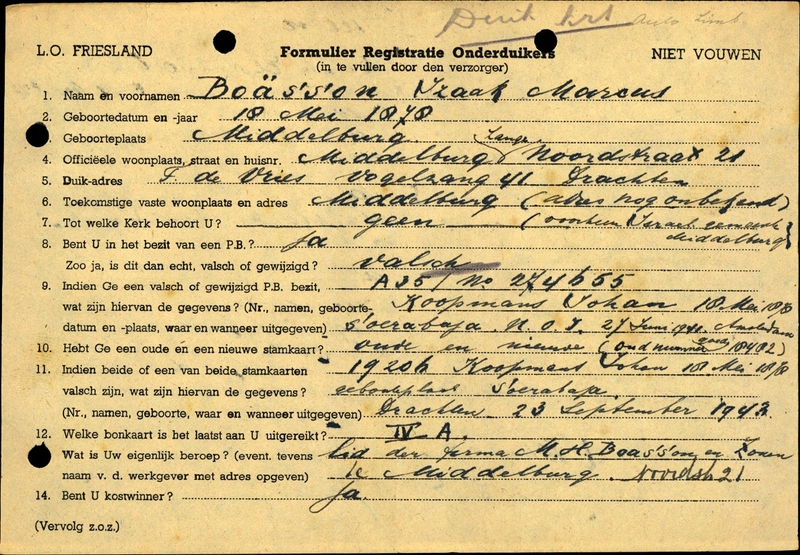 Duik krt
L.O. FRIESLAND Formulier Registratie Onderduikers NIET VOUWEN
(in te vullen door den verzorger)
1. Naam en voornamen Boäs's'on Izaak Marcus
2. Geboortedatum en -jaar 18 Mei 1878
3. Geboorteplaats Middelburg.
4. Officiëele woonplaats, straat en huisnr. Middelburg Lange Noordstraat 21
5. Duik-adres F. de Vries Vogelzang 41 Drachten
6. Toekomstige vaste woonplaats en adres Middelburg (adres nog onbekend)
7. Tot welke Kerk behoort U? geen (voorheen Israel. gemeente Middelburg)
8. Bent U in het bezit van een P.B.? ja
Zoo ja, is dit dan echt, valsch of gewijzigd? valsch
9. Indien Ge een valsch of gewijzigd P.B. bezit, A35/ No 274655
wat zijn hiervan de gegevens? (Nr., namen, geboorte- Koopmans Johan 18 Mei 1878
datum en -plaats, waar en wanneer uitgegeven) s'oerabaja N.O.I. 27 Juni 1941 Amsterdam
10. Hebt Ge een oude én een nieuwe stamkaart? oude en nieuwe (oud nummer 18482)
11. Indien beide of een van beide stamkaarten 1920h Koopmans Johan 18 Mei 1878
valsch zijn, wat zijn hiervan de gegevens? geboorteplaats s'oerabaja
(Nr., namen, geboorte, waar en wanneer uitgegeven) Drachten 23 September 1943.
12. Welke bonkaart is het laatst aan U uitgereikt? IV A.
Wat is Uw eigenlijk beroep? (event. tevens lid der firma M.H. Boas's'on en Zonen
naam v. d. werkgever met adres opgeven) te Middelburg. Noordstr 21
14. Bent U kostwinner? Ja.
(Vervolg z.o.z.)